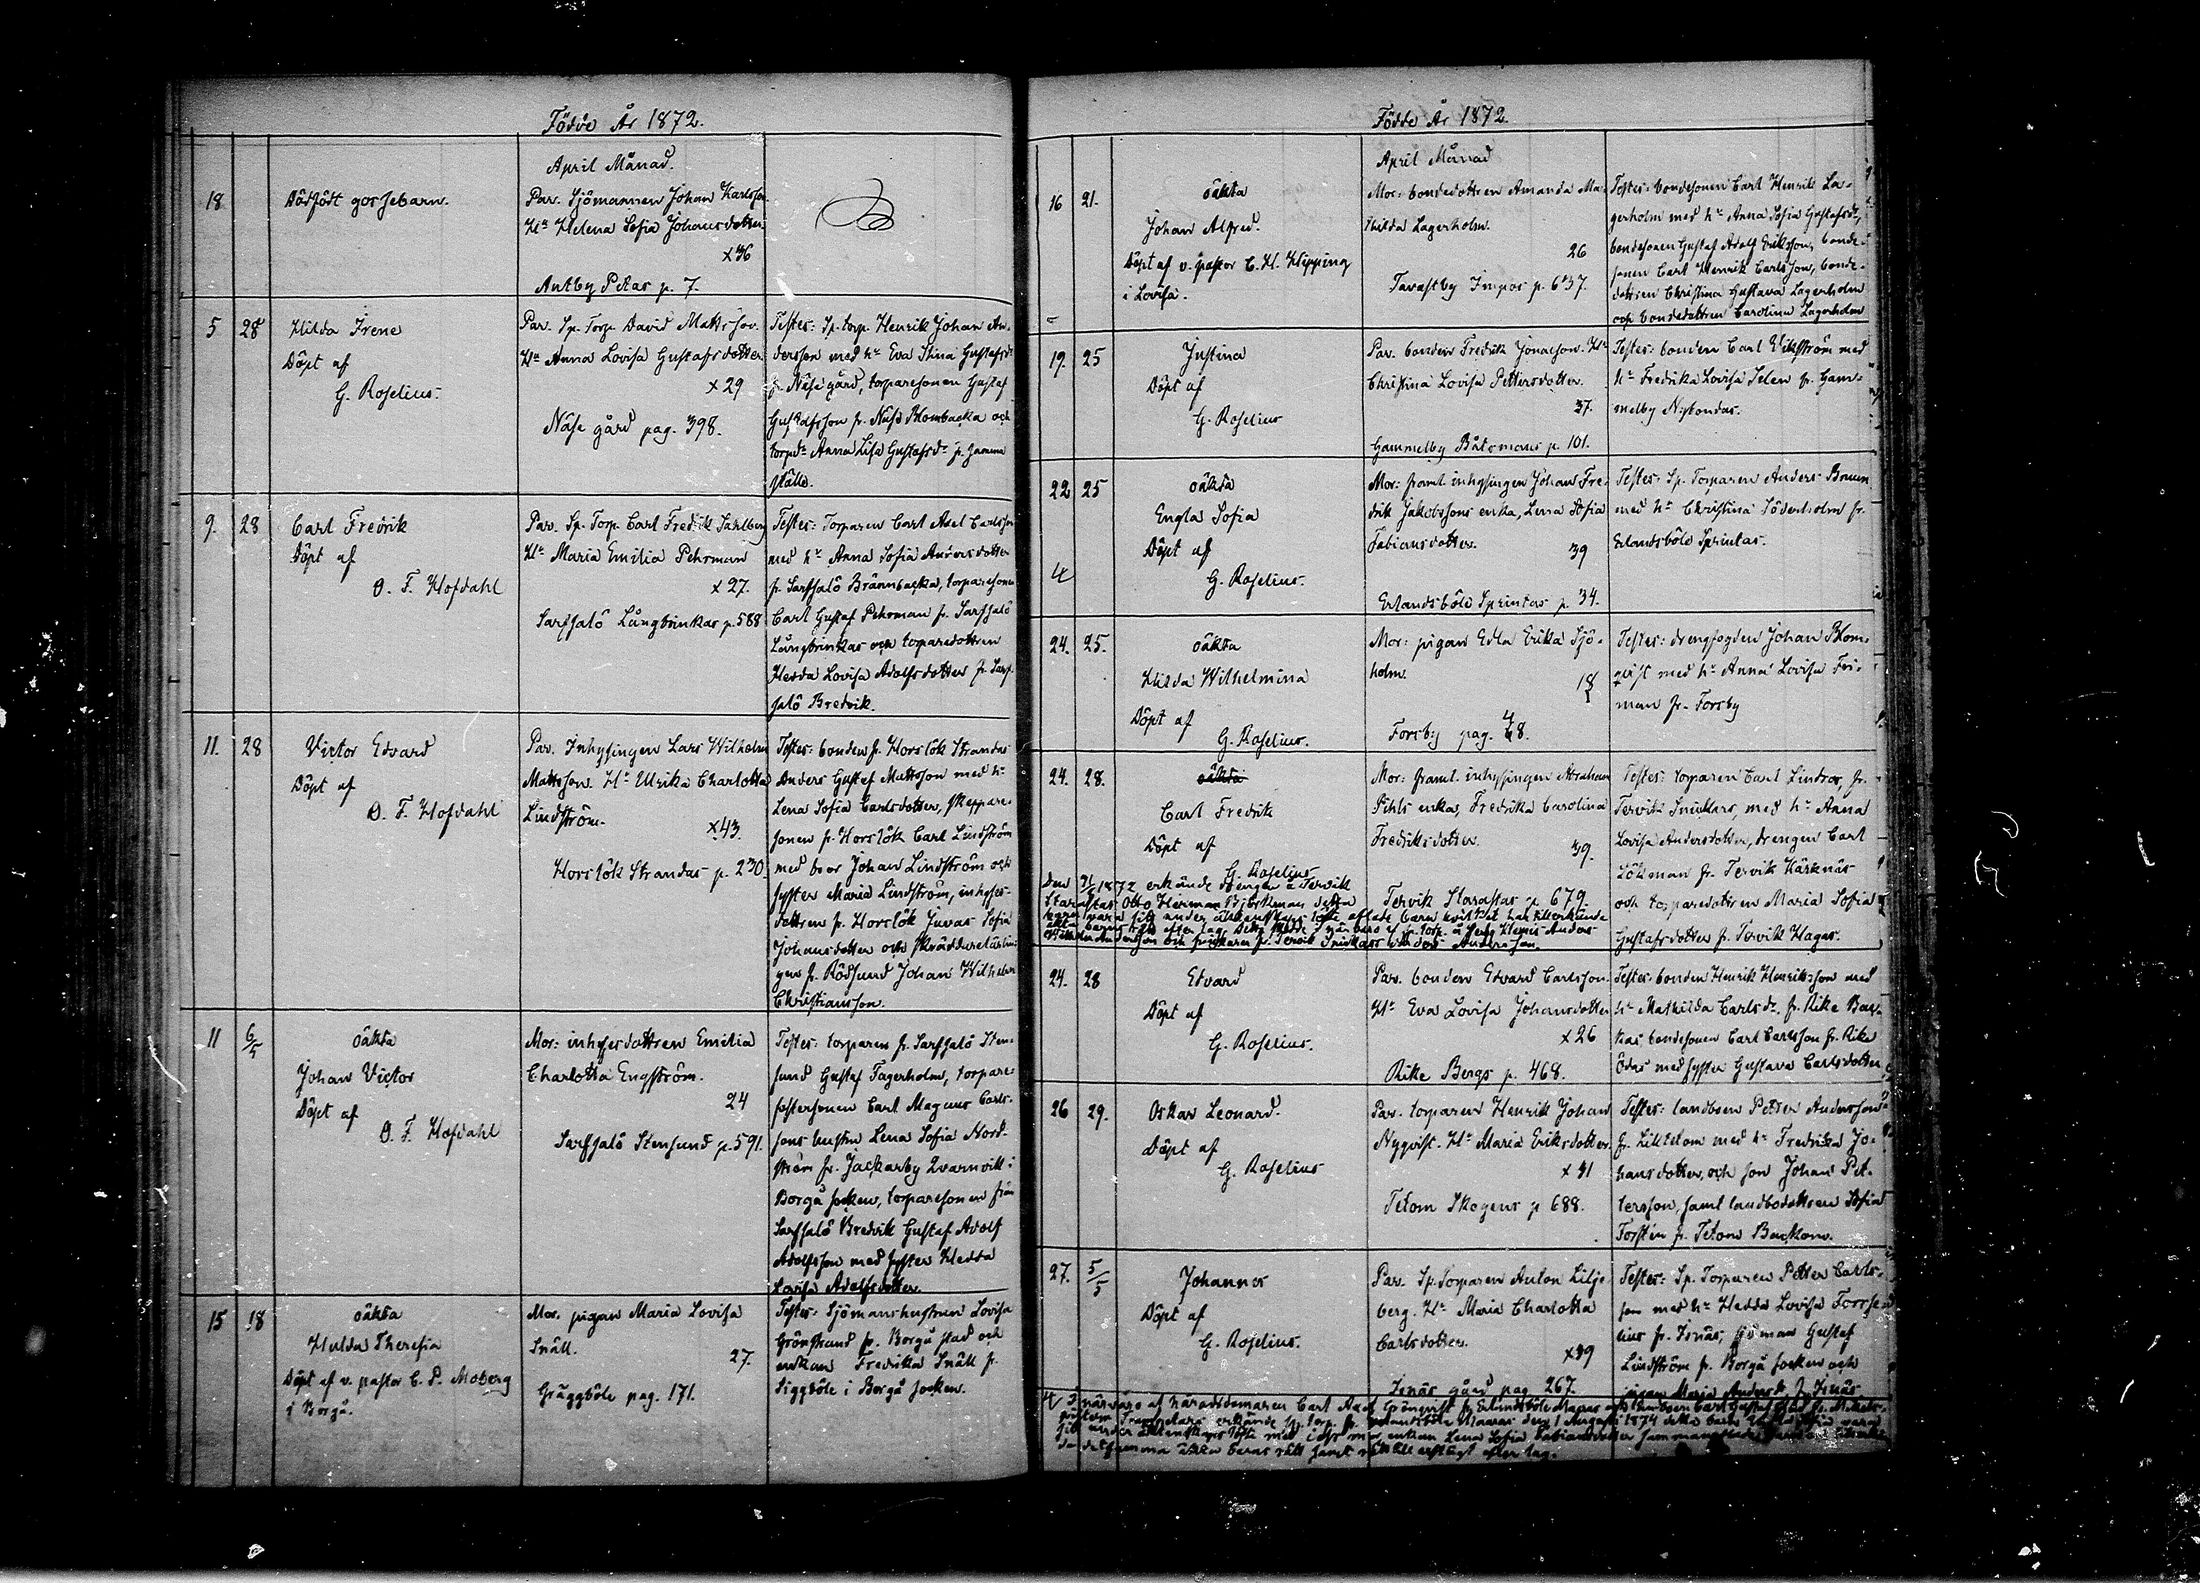 Födde År 1872.
April Månad.
18
Dödfödt gossebarn.
Par. Sjömannen Johan Karlsson
Hu Helena Sofia Johansdotter
x36
Antby Petas p. 7.
5 28
Hilda Irene
Döpt af
G. Roselius.
Par. Sp. Torp. David Mattsson.
Hu Anna Lovisa Gustafsdotter
x29
Näse gård pag. 398.
Testes: Sp. torp. Henrik Johan An-
dersson med h: Eva Stina Gustafsdr
fr. Näse gård, torparesonen Gustaf
Gustafsson fr. Näse Blombacka och
torpdr Anna Lisa Gustafsdr fr. samma
ställe.
9. 28
Carl Fredrik
Döpt af
O. F. Hofdahl
Par. Sp. Torp. Carl Fredrik Sahlberg
Hu Maria Emilia Pehrman
x27.
Sarfsalö Långbrinkas p. 588
Testes: Torparen Carl Axel Carlsson
med h: Anna Sofia Andersdotter
fr. Sarfsalö Brännbacka, torparesonen
Carl Gustaf Pehrman fr. Sarfsalö
Långbrinkas och torparedottren
Hedda Lovisa Adolfsdotter fr. Sarf-
salö Bredvik.
11. 28
Victor Edvard
Döpt af
O. F. Hofdahl
Par. Inhysingen Lars Wilhelm
Mattsson. Hu Ulrika Charlotta
Lindström.
x43.
Horslök Strandas p. 230
Testes: bonden fr. Horslök Strandas
Anders Gustaf Mattsson med h:
Lena Sofia Carlsdotter, skeppare-
sonen fr. Horslök Carl Lindström
med bror Johan Lindström och
syster Maria Lindström, inhyses-
dottren fr. Horslök Juvas Sofia
Johansdotter och skräddarelärlin-
gen fr. Rödsund Johan Wilhelm
Christiansson.
11 6/5
oäkta
Johan Victor
Döpt af
O. F. Hofdahl
Mor: inhysesdottren Emilia
Charlotta Engström.
24
Sarfsalö Stensund p. 591.
Testes: torparen fr. Sarfsalö Sten-
sund Gustaf Fagerholm, torpare-
fostersonen Carl Magnus Carls-
sons hustru Lena Sofia Nord-
ström fr. Jackarby Qvarnvik i
Borgå socken, torparesonen från
Sarfsalö Bredvik Gustaf Adolf
Adolfsson med syster Hedda
Lovisa Adolfsdotter.
15 18
oäkta
Hulda Theresia
Döpt af v. pastor C. P. Moberg
i Borgå.
Mor. pigan Maria Lovisa
Snäll.
27.
Gräggböle pag. 171.
Testes: Sjömanshustrun Lovisa
Grönstrand fr. Borgå stad och
enkan Fredrika Snäll fr.
Siggböle i Borgå socken.
Födde År 1872.
April Månad
16 21.
oäkta
Johan Alfred.
Döpt af v. pastor C. H. Klipping
i Lovisa.
Mor: bondedottren Amanda Ma-
thilda Lagerholm.
26
Tavastby p. 637.
Testes: bondesonen Carl Henrik La-
gerholm med h: Anna Sofia Gustafsdr,
bondesonen Gustaf Adolf Eriksson, bonde-
sonen Carl Henrik Carlsson, bonde-
dottren Christina Gustava Lagerholm
och bondedottren Carolina Lagerholm
19. 25
Justina
Döpt af
G. Roselius
Par. bonden Fredrik Jonasson. Hu
Christina Lovisa Pettersdotter.
37.
Gammelby Båtsmans p. 101.
Testes: bonden Carl Wikström med
h: Fredrika Lovisa Selen fr. Gam-
melby
22 25
oäkta
Engla Sofia
Döpt af
G. Roselius.
Mor: framl. inhysingen Johan Fre-
drik Jakobssons enka, Lena Sofia
Fabiansdotter.
39
Erlandsböle Sprintas p. 34.
Testes: Sp. Torparen Anders Bruun
med h: Christina Söderholm fr.
Erlandsböle Sprintas.
24. 25.
oäkta
Hilda Wilhelmina
Döpt af
G. Roselius.
Mor: pigan Edla Erika Sjö-
holm.
18
Forsby pag. 48.
Testes: drengfogden Johan Blom-
qvist med h: Anna Lovisa Fri-
man fr. Forsby
24. 28.
oäkta
Carl Fredrik
Döpt af
G. Roselius
Mor: framl. inhysingen Abraham
Pihls enka, Fredrika Carolina
Fredriksdotter.
39.
Tervik Starastas p. 679.
Testes: torparen Carl Lindros, fr.
Tervik Snickars, med h: Anna
Lovisa Andersdotter, drengen Carl
Lökman fr. Tervik Härknäs
och torparedottren Maria Sofia
Gustafsdotter fr. Tervik Hagas.
1872 erkände drengen å Tervik
Starastas Otto Herman Björkman detta
24. 28
Edvard
Döpt af
G. Roselius.
Par. bonden Edvard Carlsson.
Hu Eva Lovisa Johansdotter
x26
Rike Bergs p. 468.
Testes: bonden Henrik Henriksson med
h: Mathilda Carlsdr. fr. Rike Bac-
kas bondesonen Carl Carlsson fr. Rike
Ödas med syster Gustava Carlsdotter
26 29.
Oskar Leonard.
Döpt af
G. Roselius
Par. torparen Henrik Johan
Nyqvist. Hu Maria Eriksdotter
x31
Tetom Skogens p 688.
Testes: landboen Petter Andersson
fr. Lilltetom med h: Fredrika Jo-
hansdotter, och son Johan Pet-
tersson, samt landbodottren Sofia
Forstén fr. Tetom Backom.
27. 5/5
Johannes
Döpt af
G. Roselius.
Par. Sp. Torparen Anton Lilje-
berg. Hu Maria Charlotta
Carlsdotter.
x39
Isnäs gård pag. 267.
Testes: Sp. Torparen Petter Carls-
son med h: Hedda Lovisa
fr. Isnäs, sjöman Gustaf
Lindström fr. Borgå socken och
pigan Maria fr. Isnäs.